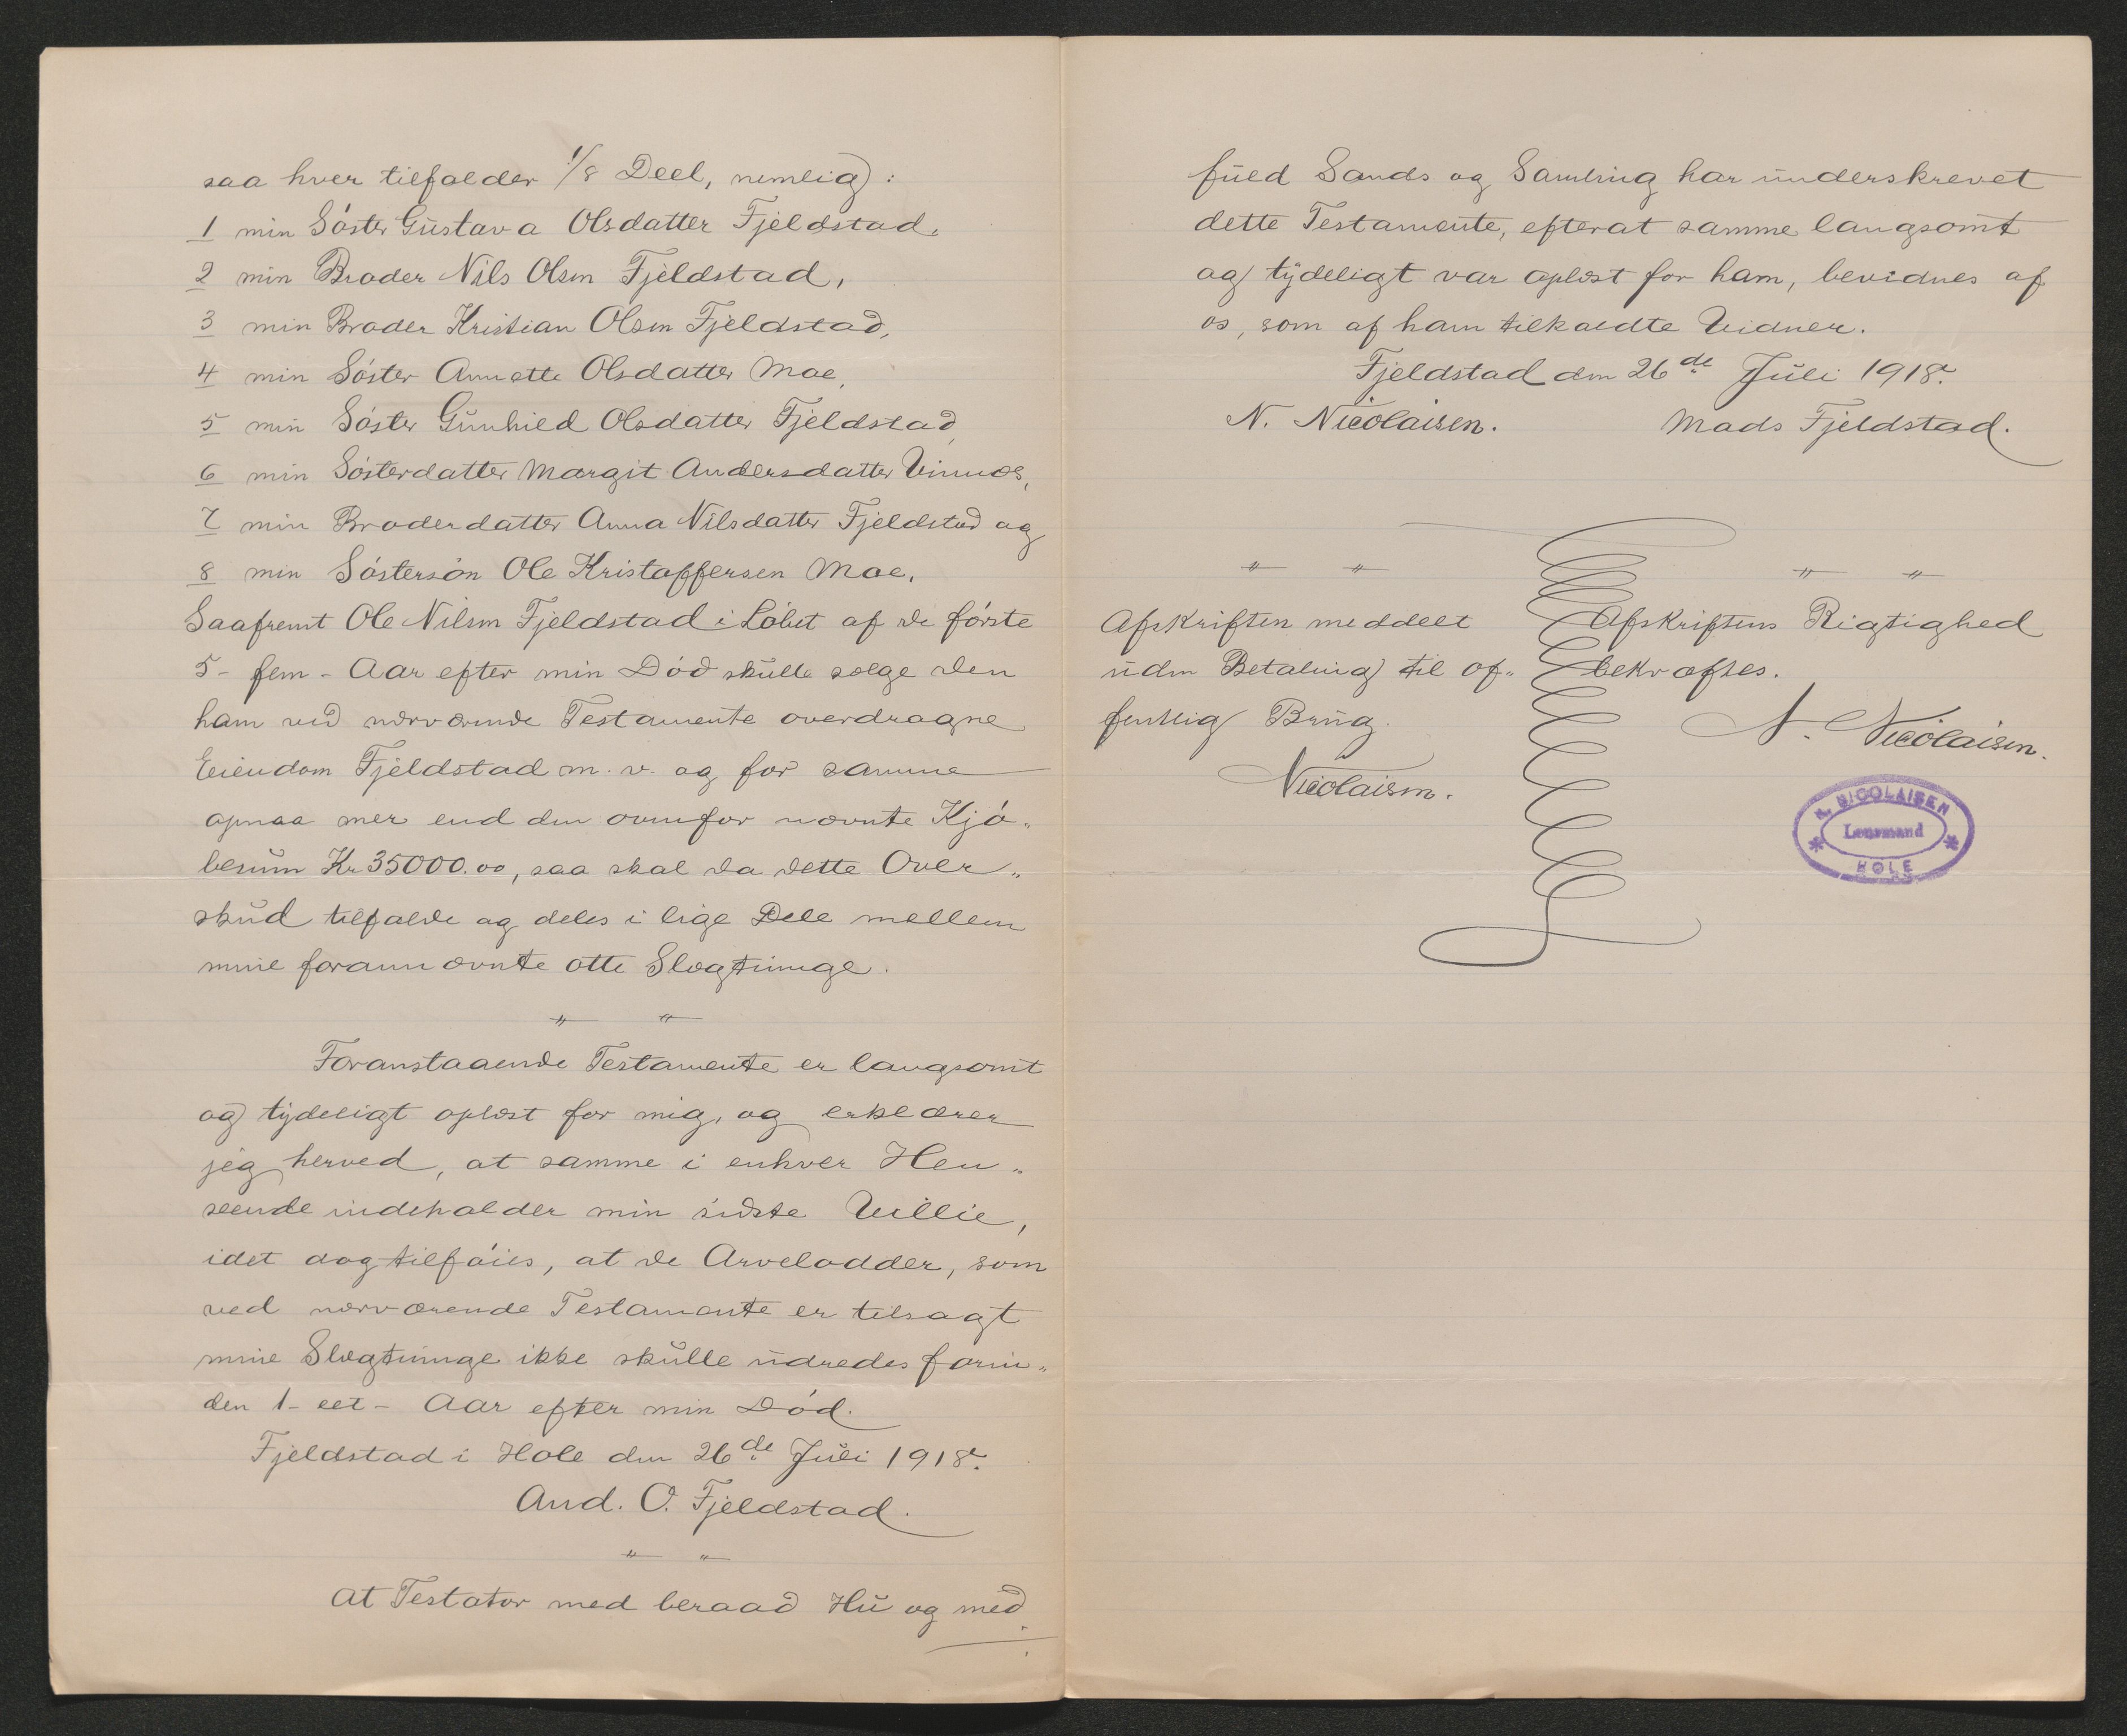 saa hver tilfalder 1/8 Deel, nemlig:
1 min Söster Gustava Olsdatter Fjeldstad,
2 min Broder Nils Olsen Fjeldstad,
3 min Broder Kristian Olsen Fjeldstad,
4 min Söster Annette Olsdatter Moe,
5 min Söster Gunhild Olsdatter Fjeldstad,
6 min Sösterdatter Margit Andersdatter Vinnæs,
7 min Broderdatter Anna Nilsdatter Fjeldstad og
8 min Söstersön Ole Kristoffersen Moe.
Saafremt Ole Nilsen Fjeldstad i Löbet af de förste
5 - fem - Aar efter min Död skulle sælge den
ham ved nærværende Testamente overdragne
Eiendom Fjeldstad m. v. og for samme
opnaa mer end den ovenfor nævnte Kjö„
besum Kr 35000.00, saa skal da dette Over„
skud tilfalde og deles i lige Dele mellem
mine forannævnte otte Slægtninge.
„ „
Foranstaaende Testamente er langsomt
og tydeligt oplæst for mig, og erklærer
jeg herved, at samme i enhver Hen„
seende indeholder min sidste Villie,
idet dog tilföies, at de Arvelodder, som
ved nærværende Testamente er tilsagt
mine Slægtninge ikke skulle udredes forin„
den 1 - eet - Aar efter min Död.
Fjeldstad i Hole den 26de Juli 1918.
And. O. Fjeldstad.
„ „
At Testator med beraad Hu og med
fuld Sands og Samling har underskrevet
dette Testamente, efterat samme langsomt
og tydeligt var oplæst for ham, bevidnes af
os, som af ham tilkaldte Vidner.
Fjeldstad den 26de Juli 1918.
N. Nicolaisen. Mads Fjeldstad.
„ „ „ „
Afskriften meddelt
uden Betaling til of„
fentlig Brug.
Nicolaisen.
Afskriftens Rigtighed
bekræftes.
N. Nicolaisen.
N. NICOLAISEN
Lensmand
HOLE